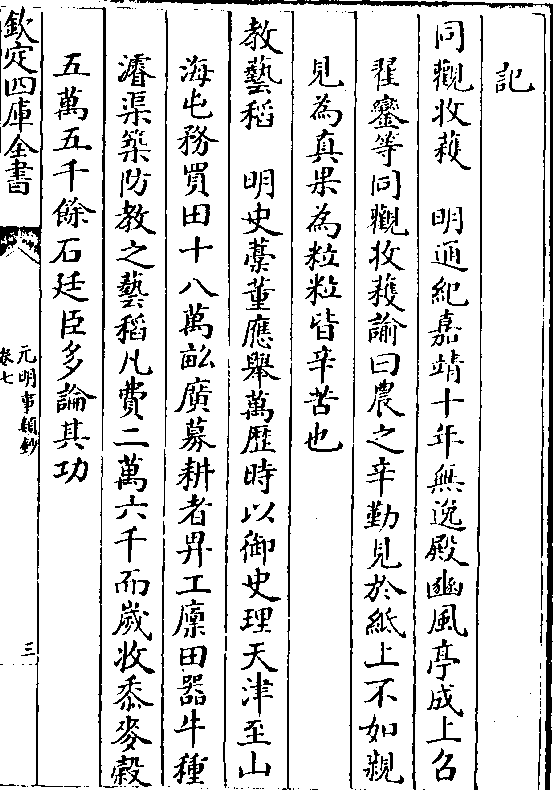 記
同觀收穫　明通紀嘉靖十年無逸殿豳風亭成上召
翟鑾等同觀收穫諭曰農之辛勤見於紙上不如親
見為真果為粒粒皆辛苦也
教藝稻　明史藁董應舉萬歷時以御史理天津至山
海屯務買田十八萬畝廣募耕者畀工廩田器牛種
濬渠築防教之藝稻凡費二萬六千而嵗收黍麥穀
五萬五千餘石廷臣多論其功
欽定四庫全書
元明事類鈔
卷七
三